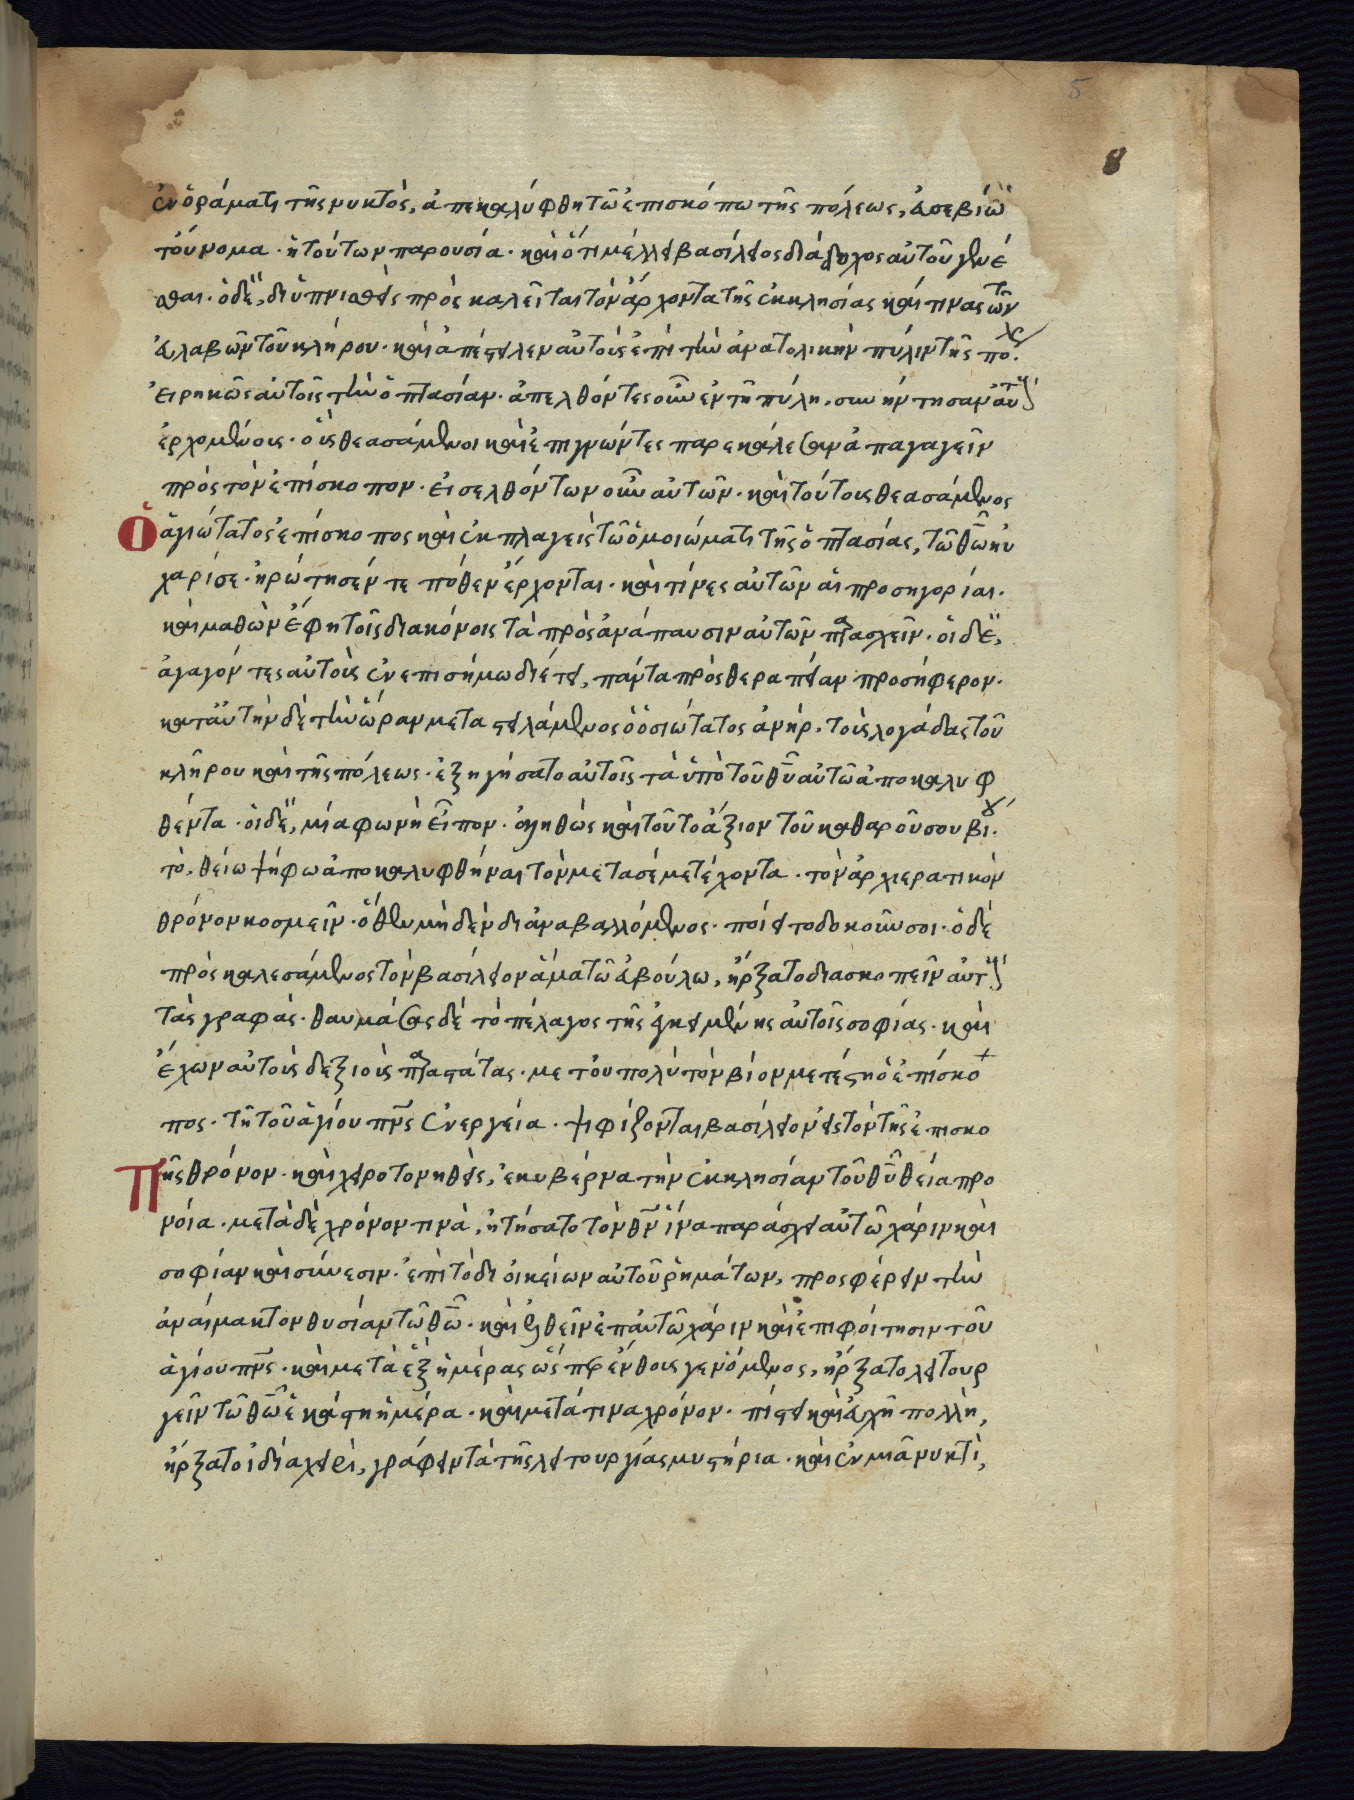 5
8
ἐν ὁράματι τῆς νυκτὸς, ἀπεκαλύφθη τῶ ἐπισκόπω τῆς πόλεως, εὐσεβίω
τοὔνομα · ἡ τούτων παρουσία · καὶ ὅτι μέλλει βασίλειος διάδοχος αὐτοῦ γενέ
σθαι · ὁ δὲ, διυπνισθεὶς προσκαλεῖται τὸν ἄρχοντα τῆς ἐκκλησίας καί τινας τῶν
εὐλαβῶν τοῦ κλήρου · καὶ ἀπέστειλεν αὐτοὺς ἐπὶ τὴν ἀνατολικὴν πύλιν τῆς πόλεως.
εἰρηκὼς αὐτοῖς τὴν ὀπτασίαν · ἀπελθόντες οὖν ἐν τῆ πύλη, συνήντησαν αὐτοῖς
ἐρχομένοις · οὓς θεασάμενοι καὶ ἐπιγνώντες παρεκάλεσαν ἀπαγαγεῖν
πρὸς τὸν ἐπίσκοπον · εἰσελθόντων οὖν αὐτῶν · καὶ τούτοις θεασάμενος
Ὁ ἁγιώτατος ἐπίσκοπος καὶ ἐκπλαγεὶς τῶ ὁμοιώματι τῆς ὀπτασίας, τῶ θῶ ηὐ
χαρίσε · ἠρώτησέν τε πόθεν ἔρχονται · καὶ τίνες αὐτῶν αἱ προσηγορίαι ·
καὶ μαθὼν ἔφη τοῖς διακόνοις τὰ πρὸς ἀνάπαυσιν αὐτῶν παρασχεῖν · οἱ δὲ,
ἀγαγόντες αὐτοὺς ἐν επισήμω διέτει, πάντα πρὸς θεραπείαν προσήφερον ·
κατ αὐτὴν δὲ τὴν ὥραν μεταστειλάμενος ὁ ὁσιώτατος ἀνήρ, τοὺς λογάδας τοῦ
κλῆρου καὶ τῆς πόλεως · ἐξηγήσατο αὐτοῖς τὰ ὑπὸ τοῦ θῦ αὐτῶ ἀποκαλυφ
θέντα · οἱ δὲ, μία φωνὴ εἶπον · ἀληθῶς καὶ τοῦτο ἄξιον τοῦ καθαροῦ σου βίου ·
τὸ, θείω ψήφω ἀποκαλυφθῆναι τὸν μετὰ σέ μετέχοντα · τὸν ἀρχιερατικὸν
θρόνον κοσμεῖν · ὅθεν μηδὲν διαναβαλλόμενος · ποίει τὸ δοκοῦν σοι · ὁ δέ
προσκαλεσάμενος τὸν βασίλειον ἅμα τῶ εὐβούλω, ἤρξατο διασκοπεῖν αὐτοῖς
τὰς γραφάς · θαυμάσας δέ τὸ πέλαγος τῆς κειμένης αὐτοῖς σοφίας · καὶ
ἔχων αὐτοὺς δεξιοὺς παραστάτας · μετ οὐ πολὺ τὸν βίον μετέστη ὁ ἐπίσκο
πος · τῆ τοῦ ἁγίου πνς ἐνεργεία · ψιφίζονται βασίλειον εἰς τὸν τῆς ἐπισκο
Πῆς θρόνον · καὶ χειροτονηθεὶς, ἐκυβέρνα τὴν ἐκκλησίαν τοῦ θῦ θεία προ
νόία · μετὰ δὲ χρόνον τινὰ, ἠτήσατο τὸν θν ἵνα παράσχει αὐτῶ χάριν καὶ
σοφίαν καὶ σύνεσιν · ἐπὶ τὸ δι οἰκείων αὐτοῦ ῥημάτων, προσφέρειν τὴν
ἀναίμακτον θυσίαν τῶ θῶ · καὶ ἐλθεῖν ἐπ αὐτῶ χάριν καὶ ἐπιφοίτησιν τοῦ
ἁγίου πνς · καὶ μετὰ ἓξ ἡμέρας ὥσπερ ἔνθους γενόμενος, ἤρξατο λειτουρ
γεῖν τῶ θῶ ἑκάστη ἡμέρα · καὶ μετά τινα χρόνον · πίστει καὶ εὐχῆ πολλῆ,
ἤρξατο ἰδία χειρὶ, γράφειν τὰ τῆς λειτουργίας μυστήρια · καὶ ἐν μιᾶ νυκτὶ,